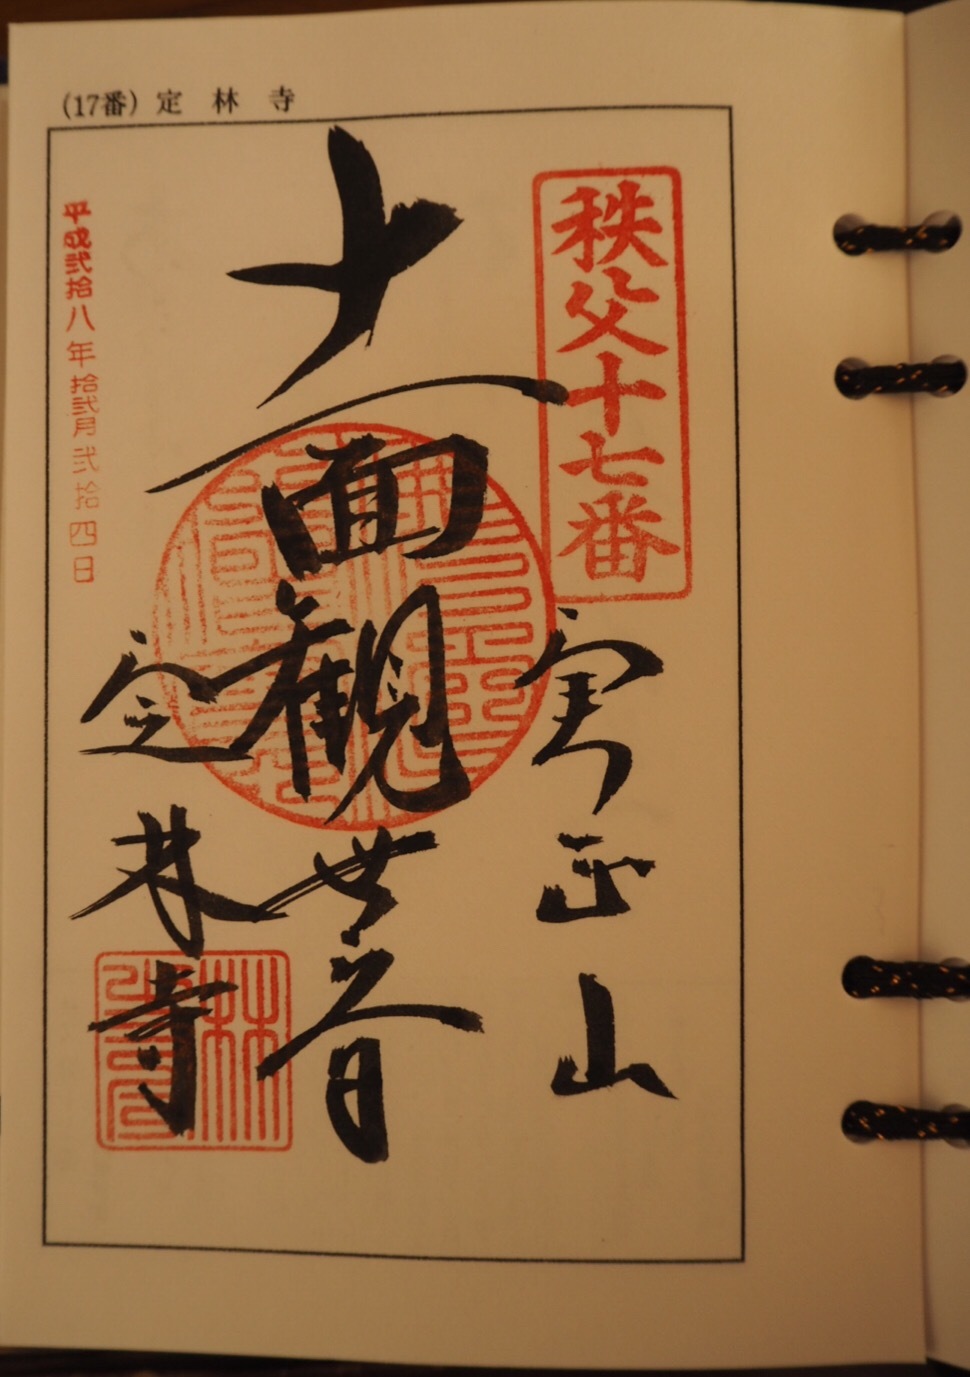 (17番) 定 林 寺
秩父十七番
实正山
十一面観世音
定林寺
平成弐拾八年拾弐月弐拾四日